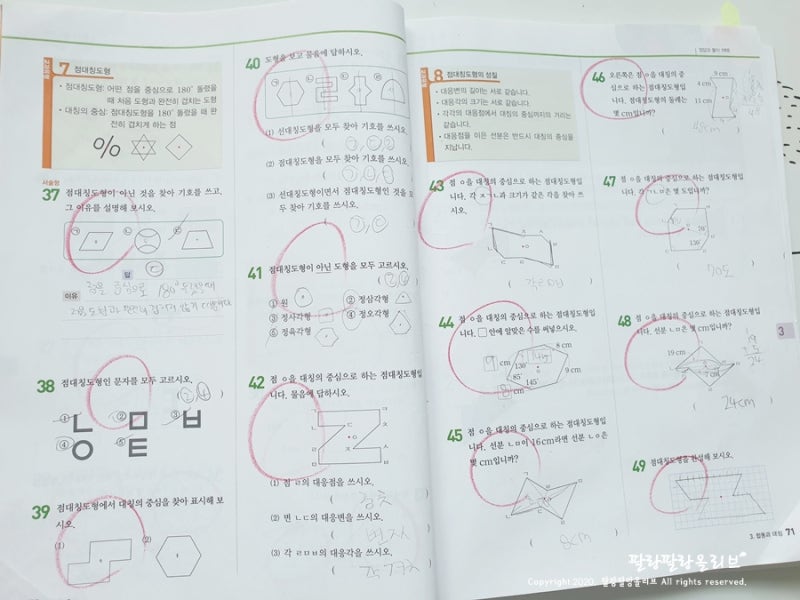 7 점대칭도형
• 점대칭도형: 어떤 점을 중심으로 180° 돌렸을
때 처음 도형과 완전히 겹치는 도형
• 대칭의 중심: 점대칭도형을 180° 돌렸을 때 완
전히 겹치게 하는 점
서술형
37 점대칭도형이 아닌 것을 찾아 기호를 쓰고,
그 이유를 설명해 보시오.
답
이유 점을 중심으로 180°
38 점대칭도형인 문자를 모두 고르시오.
① ㄴ ② ㅁ ③ ㅂ
④ ㅇ ⑤ ㅌ
39 점대칭도형에서 대칭의 중심을 찾아 표시해 보
시오.
(1) (2)
40 도형을 보고 물음에 답하시오.
(1) 선대칭도형을 모두 찾아 기호를 쓰시오.
(2) 점대칭도형을 모두 찾아 기호를 쓰시오.
(3) 선대칭도형이면서 점대칭도형인 것을 모
두 찾아 기호를 쓰시오.
41 점대칭도형이 아닌 도형을 모두 고르시오.
① 원 ② 정삼각형
③ 정사각형 ④ 정오각형
⑤ 정육각형
42 점 ㅇ을 대칭의 중심으로 하는 점대칭도형입
니다. 물음에 답하시오.
(1) 점 ㄹ의 대응점을 쓰시오.
(2) 변 ㄴㄷ의 대응변을 쓰시오.
(3) 각 ㄹㅁㅂ의 대응각을 쓰시오.
정답과 풀이
8 점대칭도형의 성질
• 대응변의 길이는 서로 같습니다.
• 대응각의 크기는 서로 같습니다.
• 각각의 대응점에서 대칭의 중심까지의 거리는
같습니다.
• 대응점을 이은 선분은 반드시 대칭의 중심을
지납니다.
43 점 ㅇ을 대칭의 중심으로 하는 점대칭도형입
니다. 각 ㅈㄱㄴ과 크기가 같은 각을 찾아 쓰
시오.
44 점 ㅇ을 대칭의 중심으로 하는 점대칭도형입
니다. □ 안에 알맞은 수를 써넣으시오.
8 cm
9 cm
130°
9 cm
85°
145°
8 cm
45 점 ㅇ을 대칭의 중심으로 하는 점대칭도형입
니다. 선분 ㄴㅁ이 16 cm라면 선분 ㄴㅇ은
몇 cm입니까?
8cm
46 오른쪽은 점 ㅇ을 대칭의 중
심으로 하는 점대칭도형입
니다. 점대칭도형의 둘레는
몇 cm입니까?
9 cm
4 cm
11 cm
48cm
47 점 ㅇ을 대칭의 중심으로 하는 점대칭도형입
니다. 각 ㄱㄴㅇ은 몇 도입니까?
70°
70도
48 점 ㅇ을 대칭의 중심으로 하는 점대칭도형입
니다. 선분 ㄴㅁ은 몇 cm입니까?
19 cm
7 cm
24cm
49 점대칭도형을 완성해 보시오.
3
3. 합동과 대칭 71
팔랑팔랑올리브
Copyright 2020. 팔랑팔랑올리브 All rights reserved.